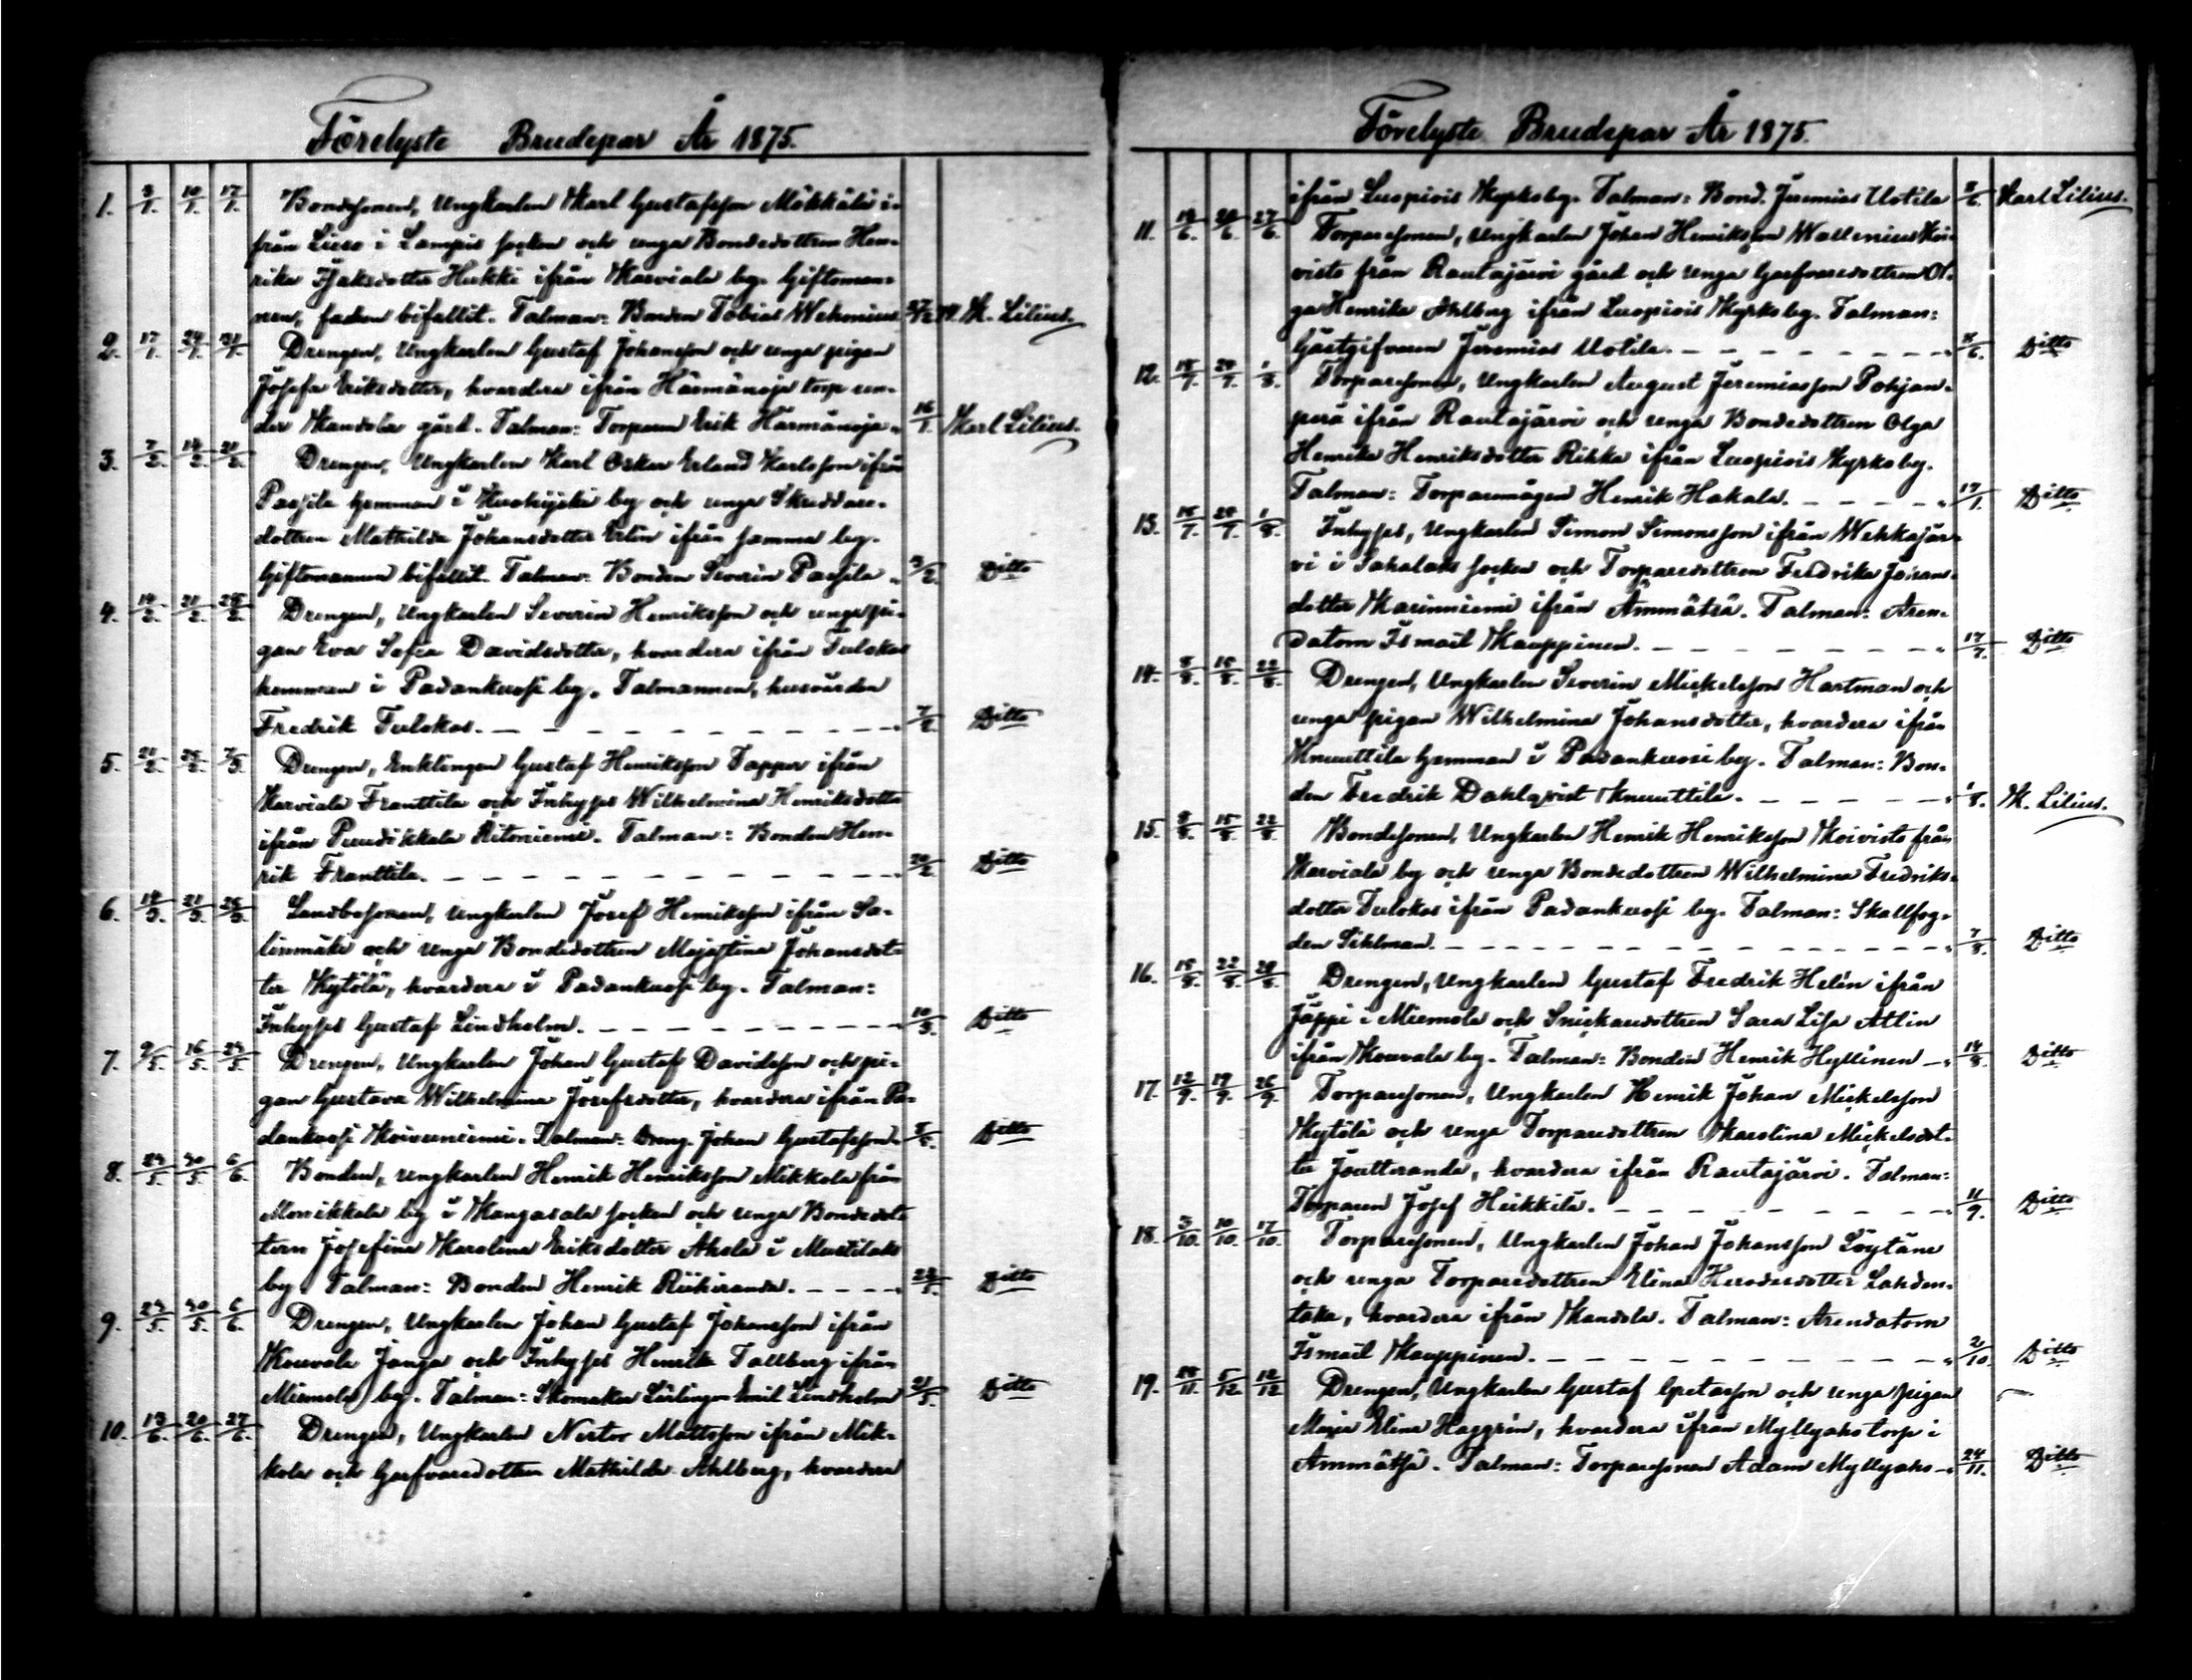 Förelyste Brudepar År 1875.
1. 3/1. 10/1. 17/1. Bondesonen, Ungkarlen Karl Gustafsson Mäkkälä i-
från Lieso i Lampis socken och unga Bondedottren Hen-
rika Isaksdotter Hukki ifrån Karviala by. Giftoman-
nen, fadren bifallit. Talman: Bonden Tobias Wehonius K. Lilius.
2. 17/1. 24/1. 31/1. Drengen, Ungkarlen Gustaf Johansson och unga pigan
Josefa Eriksdotter, hvardera ifrån Härmänoja torp un-
der Kandola gård. Talman: Torparen Erik Härmänoja 16/1. Karl Lilius.
3. 7/2. 14/2. 21/2. Drengen, Ungkarlen Karl Oskar Erland Karlsson ifrån
Pasila hemman i Kuohijoki by och unga Skreddare-
dottren Mathilda Johansdotter Erlin ifrån samma by.
Giftomannen bifallit. Talman: Bonden Severin Pasila Ditto
4. 14/2. 21/2. 28/2. Drengen, Ungkarlen Severin Henriksson och unga pi-
gan Eva Sofia Davidsdotter, hvardera ifrån Tulokas
hemman i Padankoski by. Talmannen, husvärden
Fredrik Tulokas. 7/2. Ditto
5. 21/2. 28/2. 7/3. Drengen, Enklingen Gustaf Henriksson Tapper ifrån
Karviala Franttila och Inhyses Wilhelmina Henriksdotter
ifrån Puudiskkala Ritoniemi. Talman: Bonden Hen-
rik Franttila. 20/2. Ditto
6. 14/3. 21/3. 28/3. Landbosonen, Ungkarlen Josef Henriksson ifrån Sa-
linmäki och unga Bondedottren Majastina Johansdot-
ter Kytölä, hvardera i Padankoski by. Talman:
Inhyses Gustaf Lindholm. 10/3. Ditto
7. 9/5. 16/5. 23/5. Drengen, Ungkarlen Johan Gustaf Davidsson och pi-
gan Gustava Wilhelmina Josefsdotter, hvardera ifrån Pa-
dankoski Koivuniemi. Talman: Dreng. Johan Gustafsson. 8/5. Ditto
8. 23/5. 30/5. 6/6. Bonden, Ungkarlen Henrik Henriksson Mikkola från
Monikkala by i Kangasala socken och unga Bondedot-
tern Josefina Karolina Eriksdotter Ahola i Mustilaks
by Talman: Bonden Henrik Riihiranda. Ditto
9. 23/5. 30/5. 6/6. Drengen, Ungkarlen Johan Gustaf Johansson ifrån
Kouvala Janga och Inhyses Henrik Tallberg ifrån
Miemola by. Talman: Skomakar Lärlingen Emil Lindholm 21/5. Ditto
10. 13/6. 20/6. 27/6. Drengen, Ungkarlen Nestor Mattsson ifrån Mik-
kola och Garfvaredotter Mathilda Ahlberg, hvardera
Förelyste Brudepar År 1875.
ifrån Luopiois Kyrkoby. Talman: Bond. Jeremias Uotila Karl Lilius.
11. 13/6. 20/6. 27/6. Torparesonen, Ungkarlen Johan Henriksson Wallenius Koi-
visto från Rautajärvi gård och unga Garfvaredottren Ol-
ga Henrika Ahlberg ifrån Luopiois Kyrkoby. Talman:
Gästgifvaren Jeremias Uotila. Ditto
12. 18/7. 25/7. 1/8. Torparesonen, Ungkarlen August Jeremiasson Pohjan-
perä ifrån Rautajärvi och unga Bondedottren Olga
Henrika Henriksdotter Rihka ifrån Luopiois Kyrkoby.
Talman: Torparemågen Henrik Hakala. 17/1. Ditto
13. 18/7. 25/7. 1/8. Inhyses, Ungkarlen Simon Simonsson ifrån Wehkajär-
vi i Sahalaks socken och Torparedottren Fredrika Johans-
dotter Karinniemi ifrån Ämmätsä. Talman: Aren-
datorn Ismail Kauppinen. 17/7. Ditto
14. 8/8. 15/8. 22/8. Drengen, Ungkarlen Severin Mickelsson Hartman och
unga pigan Wilhelmina Johansdotter, hvardera ifrån
Knuuttila hemman i Padankoski by. Talman: Bon-
den Fredrik Dahlqvist Knuuttila. K. Lilius.
15. 8/8. 15/8. 22/8. Bondesonen, Ungkarlen Henrik Henriksson Koivisto från
Karviala by och unga Bondedottren Wilhelmina Fredriks-
dotter Tulokas ifrån Padankoski by. Talman: Skallfog-
den Sihlman. 7/8. Ditto
16. 15/8. 22/8. 29/8. Drengen, Ungkarlen Gustaf Fredrik Helén ifrån
Jäppi i Miemola och Snickaredottren Sara Lisa Atlin
ifrån Kouvala by. Talman: Bonden Henrik Hyllinen 14/8. Ditto
17. 12/9. 19/9. 26/9. Torparesonen, Ungkarlen Henrik Johan Mickelsson
Kytölä och unga Torparedottren Karolina Mickelsdot-
ter Joutteranda, hvardera ifrån Rautajärvi. Talman:
Torparen Josef Heikkilä. 11/9. Ditto
18. 3/10. 10/10. 17/10. Torparesonen, Ungkarlen Johan Johansson Löytäne
och unga Torparedottren Elina Herodesdotter Lahden-
taka, hvardera ifrån Kandola. Talman: Arendatorn
Ismail Kauppinen. 2/10. Ditto
19. 28/11. 5/12. 12/12. Drengen, Ungkarlen Gustaf Gretasson och unga pigan
Maja Elina Haggrén, hvardera ifrån Myllyaho torp i
Ämmätsä. Talman: Torparesonen Adam Myllyaho 24/11. Ditto